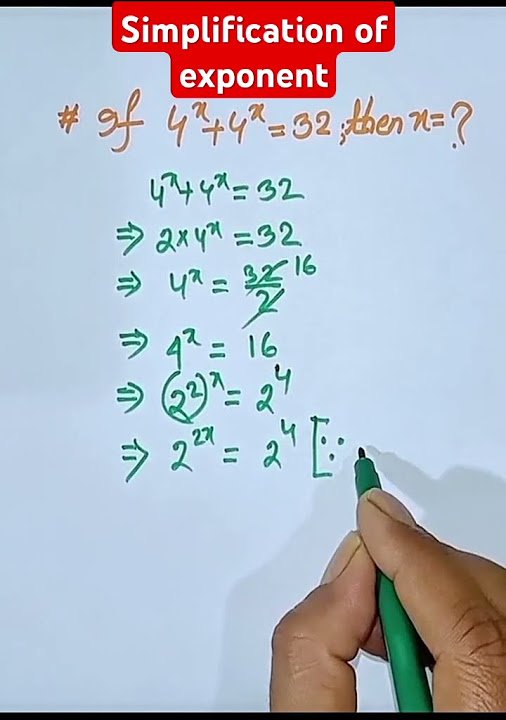 Simplification of
exponent
# If 4ˣ+4ˣ=32, then x=?
4ˣ+4ˣ=32
⇒ 2×4ˣ=32
⇒ 4ˣ = 32/2 16
⇒ 4ˣ = 16
⇒ (2²)ˣ = 2⁴
⇒ 2²ˣ = 2⁴ [∵